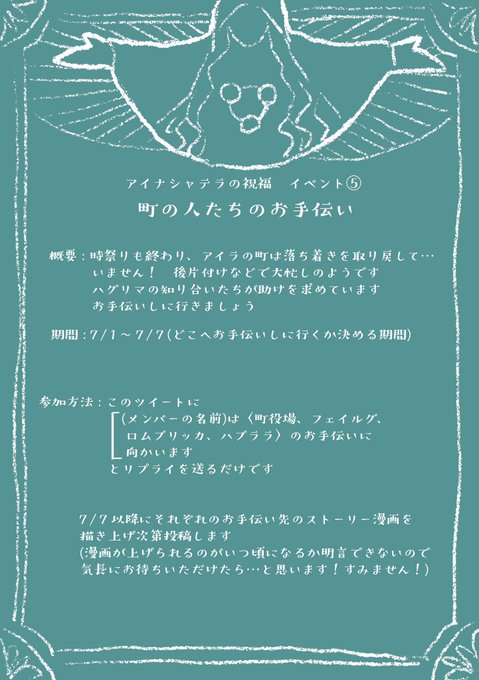 アイナシャテラの祝福　イベント⑤
町の人たちのお手伝い
概要：時祭りも終わり、アイラの町は落ち着きを取り戻して…
いません！　後片付けなどで大忙しのようです
ハグリマの知り合いたちが助けを求めています
お手伝いしに行きましょう
期間：7/1～7/7(どこへお手伝いしに行くか決める期間)
参加方法：このツイートに
(メンバーの名前)は〈町役場、フェイルグ、
ロムブリッカ、ハブララ〉のお手伝いに
向かいます
とリプライを送るだけです
7/7以降にそれぞれのお手伝い先のストーリー漫画を
描き上げ次第投稿します
(漫画が上げられるのがいつ頃になるか明言できないので
気長にお待ちいただけたら…と思います！すみません！)